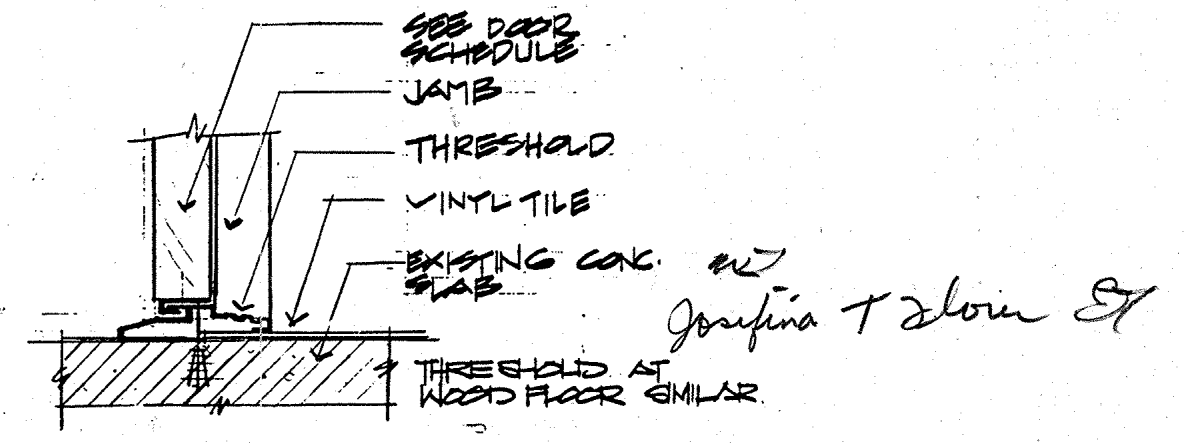 SEE DOOR
SCHEDULE
JAMB
THRESHOLD
VINYL TILE
EXISTING CONC.
SLAB
Josefina T
THRESHOLD AT
WOOD FLOOR SIMILAR